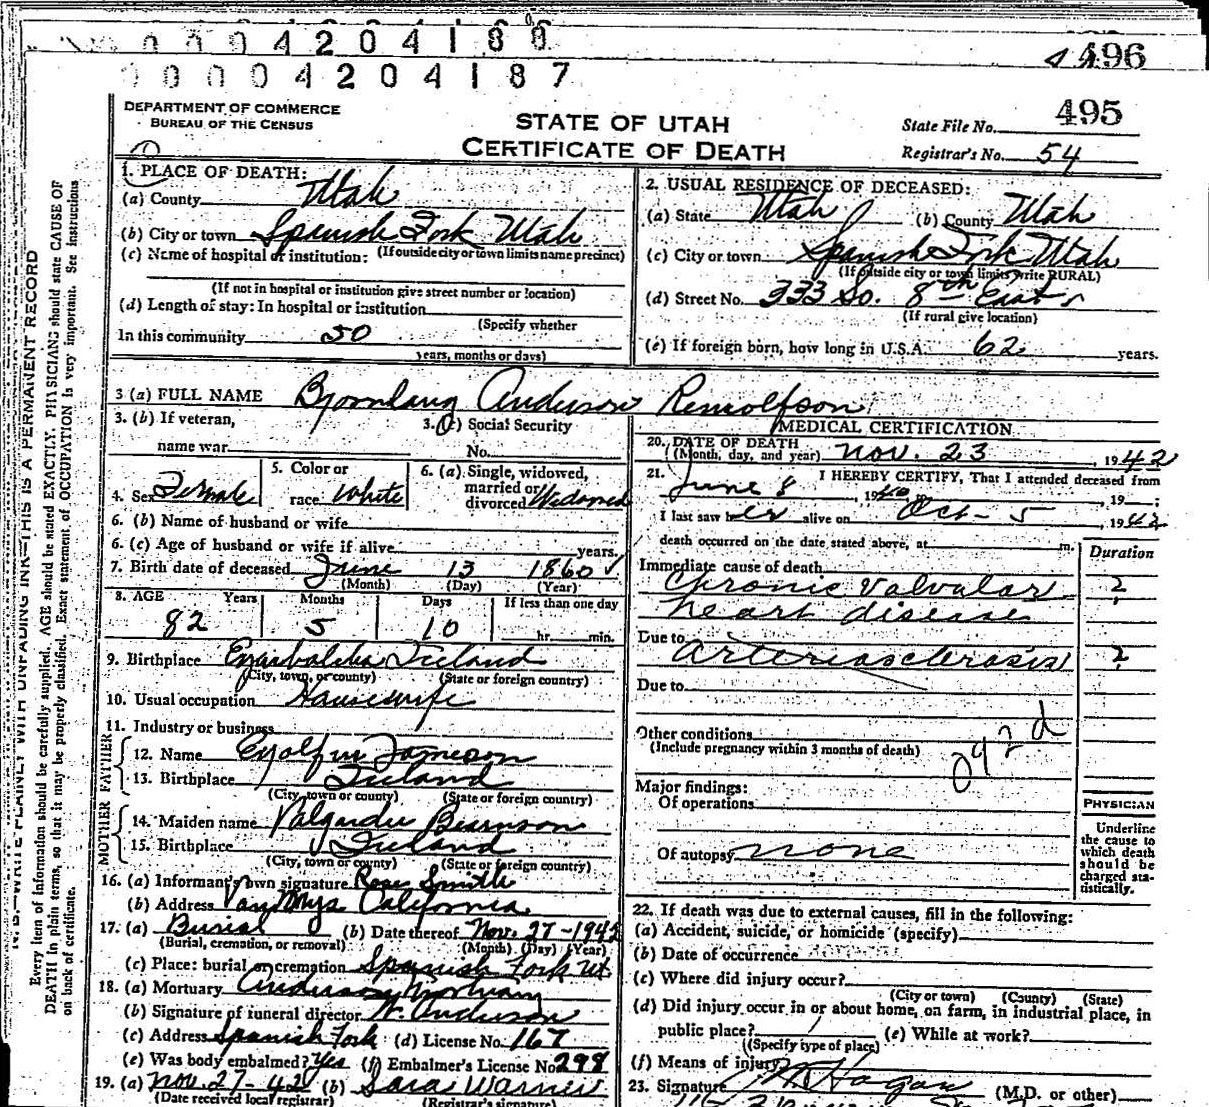 0 0 0 4 2 0 4 1 8 8
496
0 0 0 4 2 0 4 1 8 7
DEPARTMENT OF COMMERCE
BUREAU OF THE CENSUS
STATE OF UTAH
CERTIFICATE OF DEATH
State File No. 495
Registrar's No. 54
N.B.—WRITE PLAINLY WITH UNFADING INK—THIS IS A PERMANENT RECORD
Every item of information should be carefully supplied. AGE should be stated EXACTLY. PHYSICIANS should state CAUSE OF
DEATH in plain terms, so that it may be properly classified. Exact statement of OCCUPATION is very important. See instructions
on back of certificate.
1. PLACE OF DEATH:
(a) County Utah
(b) City or town Spanish Fork Utah
(If outside city or town limits name precinct)
(c) Name of hospital or institution:
(If not in hospital or institution give street number or location)
(d) Length of stay: In hospital or institution
(Specify whether
In this community 50
years, months or days)
2. USUAL RESIDENCE OF DECEASED:
(a) State Utah (b) County Utah
(c) City or town Spanish Fork Utah
(If outside city or town limits write RURAL)
(d) Street No. 333 So. 8th East
(If rural give location)
(e) If foreign born, how long in U.S.A. 62 years.
3 (a) FULL NAME Bjornlaug Anderson Remolfson
3. (b) If veteran,
name war
3. (c) Social Security
No.
4. Sex Female
5. Color or
race White
6. (a) Single, widowed,
married or
divorced Widowed
6. (b) Name of husband or wife
6. (c) Age of husband or wife if alive years.
7. Birth date of deceased June 13 1860
(Month) (Day) (Year)
8. AGE Years Months Days If less than one day
82 5 10 hr. min.
9. Birthplace Iceland
(City, town, or county) (State or foreign country)
10. Usual occupation Housewife
11. Industry or business
FATHER
12. Name Eyolfur Jameson
13. Birthplace Iceland
(City, town or county) (State or foreign country)
MOTHER
14. Maiden name Valgardur Bearnson
15. Birthplace Iceland
(City, town or county) (State or foreign country)
16. (a) Informant's own signature Rose Smith
(b) Address Van Nuys California
17. (a) Burial (b) Date thereof Nov. 27-1942
(Burial, cremation, or removal) (Month) (Day) (Year)
(c) Place: burial or cremation Spanish Fork Ut
18. (a) Mortuary Anderson Mortuary
(b) Signature of funeral director W. Anderson
(c) Address Spanish Fork (d) License No. 167
(e) Was body embalmed? Yes (f) Embalmer's License No 298
19. (a) Nov. 27-42 (b) Sara Warner
(Date received local registrar) (Registrar's signature)
MEDICAL CERTIFICATION
20. DATE OF DEATH
(Month, day, and year) Nov. 23, 1942
21. I HEREBY CERTIFY, That I attended deceased from
June 8, 1940, 19 ;
I last saw her alive on Oct- 5, 1942
death occurred on the date stated above, at m.
Duration
Immediate cause of death
Chronic Valvular ?
heart disease
Due to arteriosclerosis ?
Due to
Other conditions
(Include pregnancy within 3 months of death)
092d
Major findings:
Of operations
Of autopsy none
PHYSICIAN
Underline
the cause to
which death
should be
charged sta-
tistically.
22. If death was due to external causes, fill in the following:
(a) Accident, suicide, or homicide (specify)
(b) Date of occurrence
(c) Where did injury occur?
(City or town) (County) (State)
(d) Did injury occur in or about home, on farm, in industrial place, in
public place? (e) While at work?
(Specify type of place)
(f) Means of injury
23. Signature M Hagan (M.D. or other)